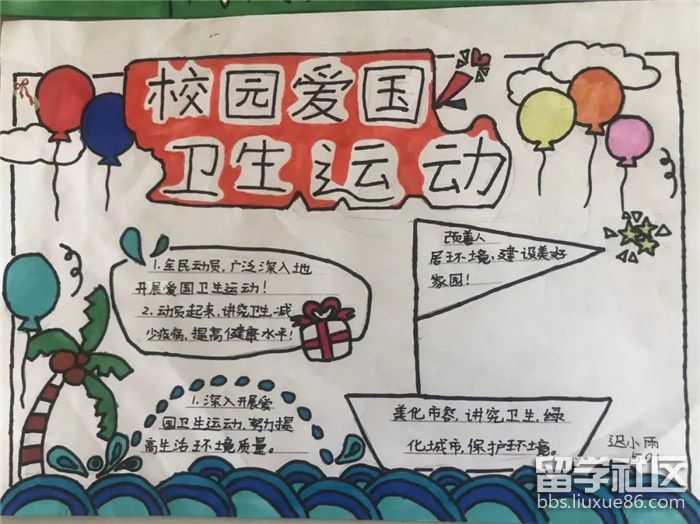 校园爱国
卫生运动
1.全民动员,广泛深入地
开展爱国卫生运动!
2.动员起来,讲究卫生,减
少疾病,提高健康水平!
改善人
居环境,建设美好
家园!
1.深入开展爱
国卫生运动,努力提
高生活环境质量。
美化市容,讲究卫生,绿
化城市,保护环境。
迟小雨
留学社区
bbs.liuxue86.com